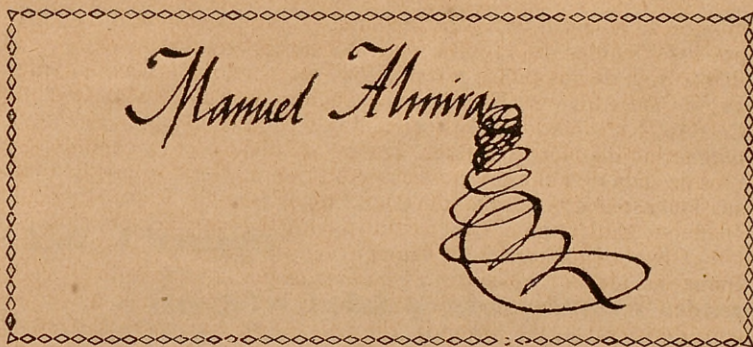 Manuel Almira